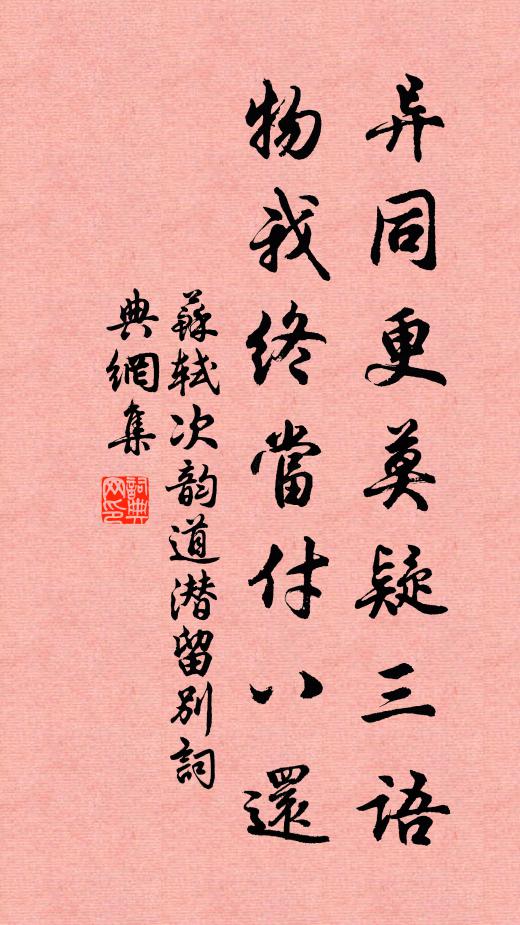 异同更莫疑三语
物我终當付八還
蘇轼次韵道潜留别詞
典網集
詞典網印